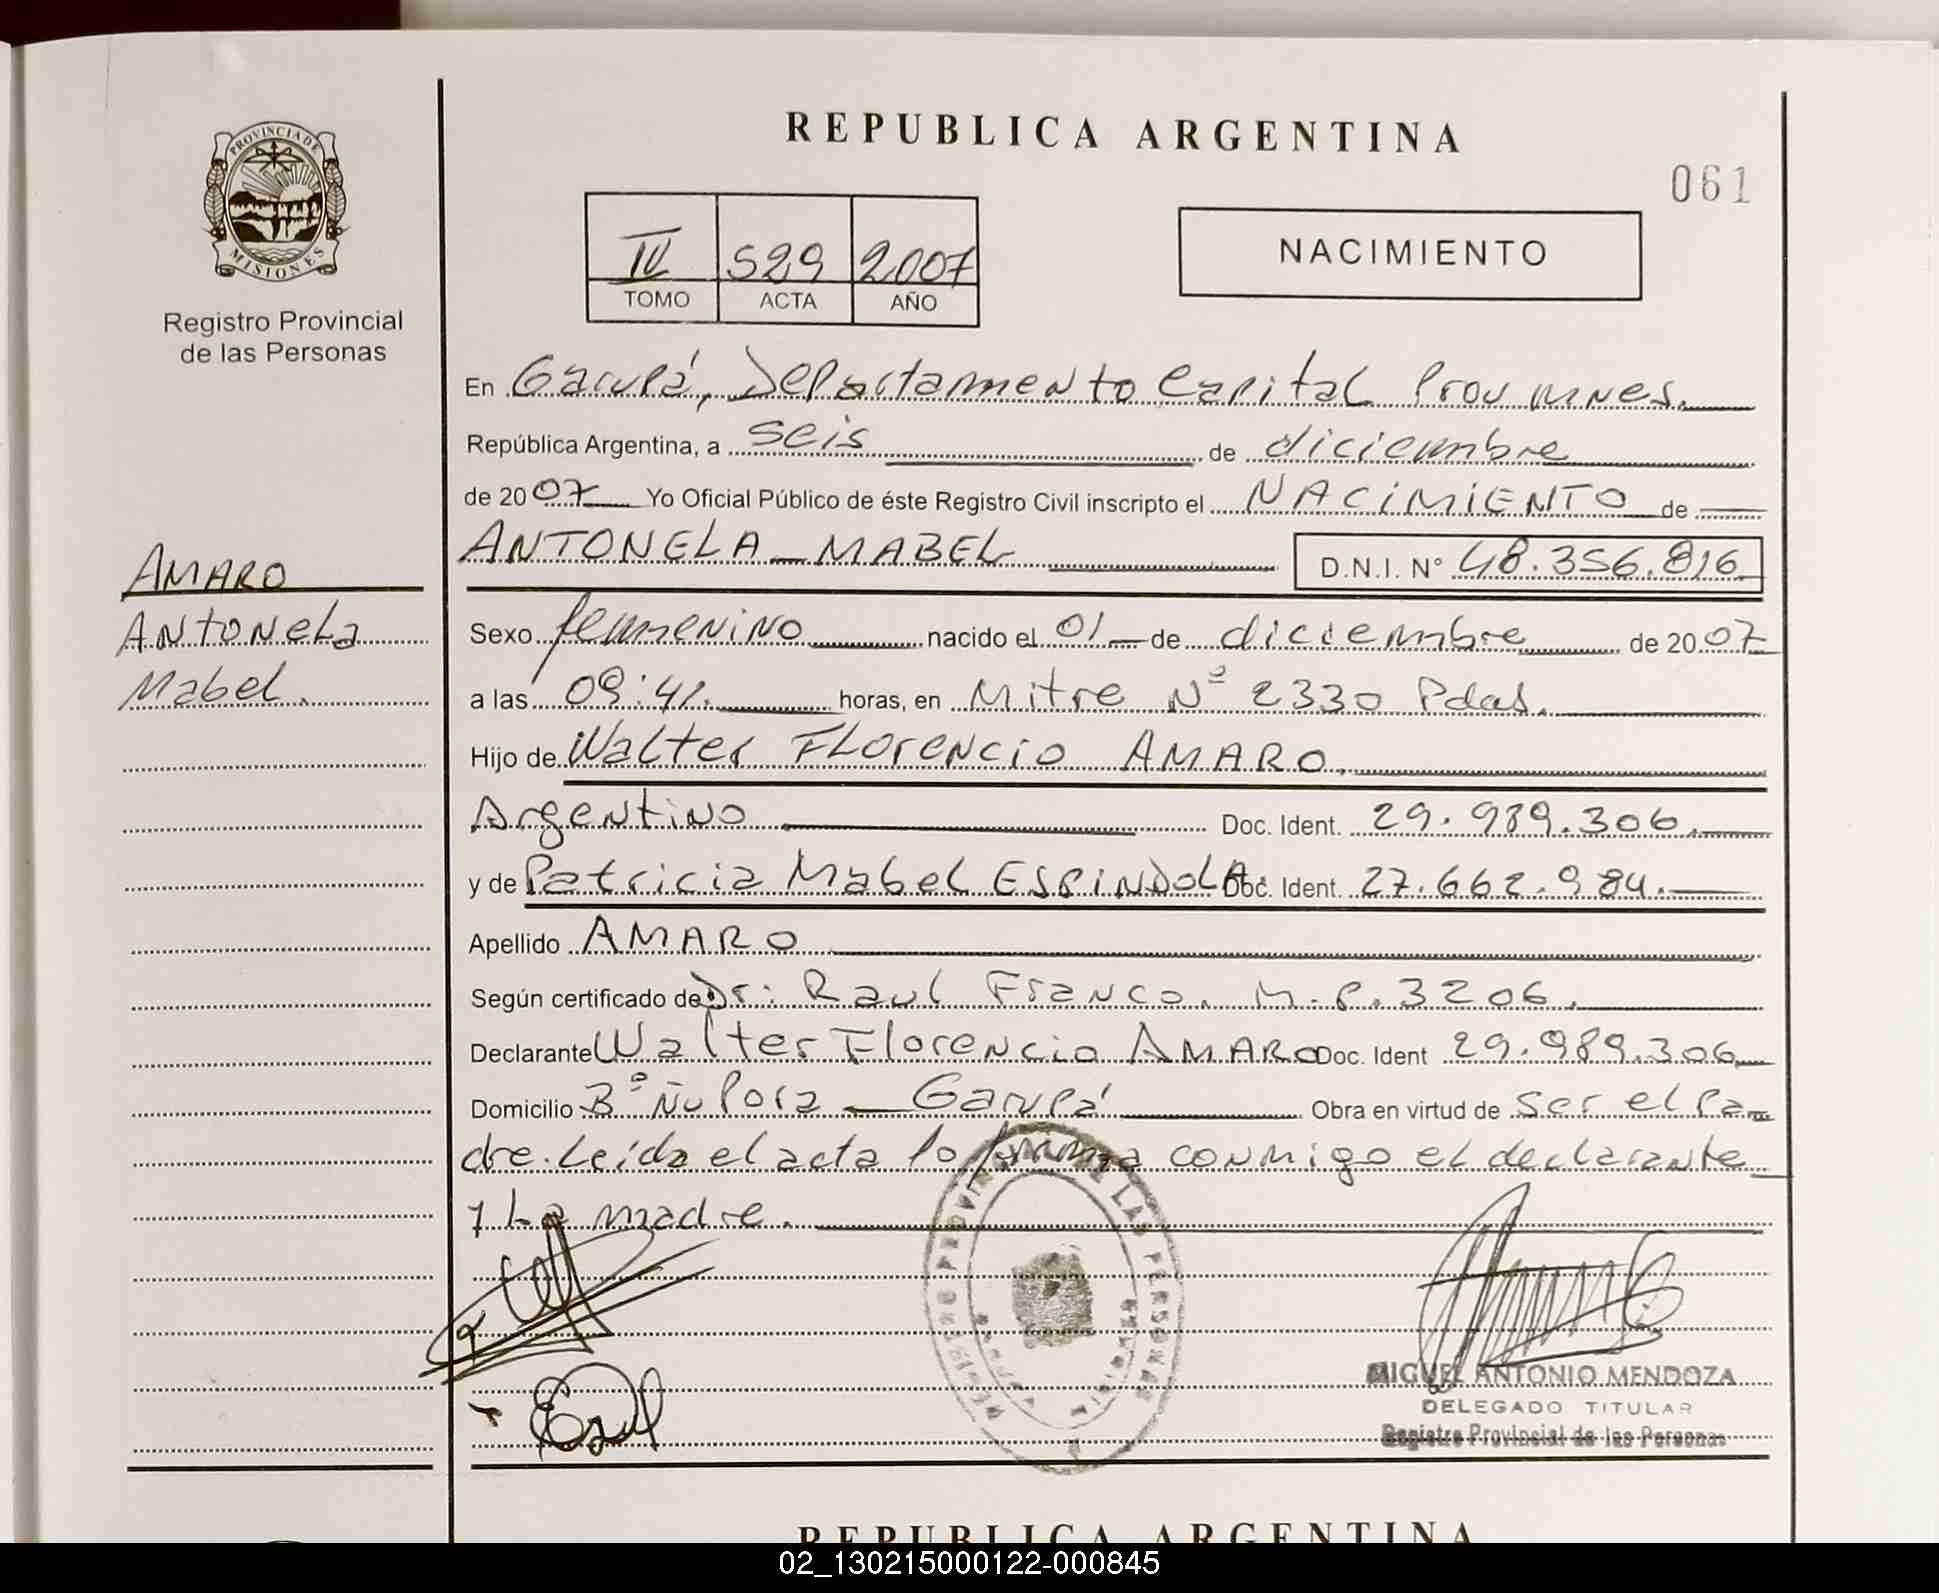 REPUBLICA ARGENTINA
061
PROVINCIA DE
MISIONES
Registro Provincial
de las Personas
IV 529 2007
TOMO ACTA AÑO
NACIMIENTO
En Garupá, Departamento Capital Prov mnes.
República Argentina, a seis de diciembre
de 2007 Yo Oficial Público de éste Registro Civil inscripto el NACIMIENTO de
ANTONELA MABEL D.N.I. N° 48.356.816
AMARO
Antonela
Mabel.
Sexo femenino nacido el 01 de diciembre de 2007
a las 09:41. horas, en Mitre Nº 2330 Pdas.
Hijo de Walter Florencio AMARO.
Argentino Doc. Ident. 29.989.306.
y de Patricia Mabel ESPINDOLA Doc. Ident. 27.662.984.
Apellido AMARO
Según certificado de Dr: Raul Franco. M.P. 3206.
Declarante Walter Florencio AMARO Doc. Ident 29.989.306
Domicilio Bº Ñu Pora - Garupá Obra en virtud de ser el Pa
dre. Leída el acta lo firma conmigo el declarante
y La madre.
REGISTRO PROVINCIAL DE LAS PERSONAS
MIGUEL ANTONIO MENDOZA
DELEGADO TITULAR
Registro Provincial de las Personas
REPUBLICA ARGENTINA
02_130215000122-000845